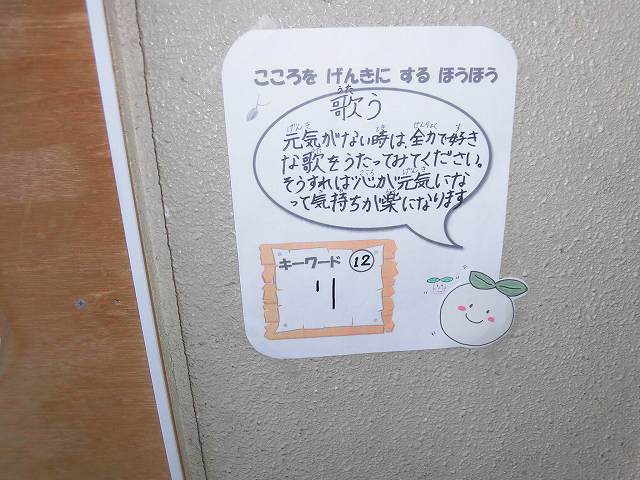 こころを げんきに する ほうほう
歌う
元気がない時は、全力で好き
な歌をうたってみてください。
そうすれば心が元気にな
って気持ちが楽になります
キーワード ⑫
リ